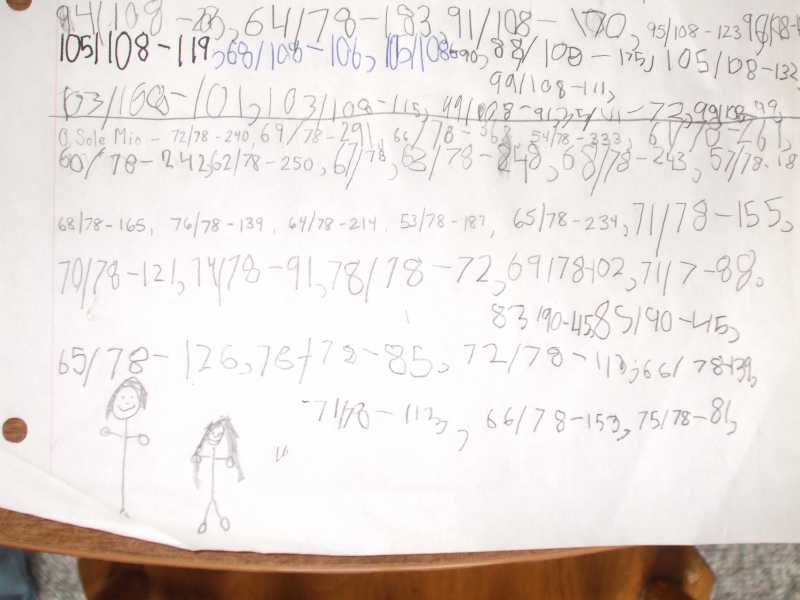 94/108-28, 64/78-183, 91/108- 95/108-123
105/108-119, 68/108-106, 88/108-125, 105/108-132
99/108-111,
103/108-101, 103/108-115, 99/108-91, -72, 99/108 99,
O Sole Mio - 72/78-240, 69/78-291, 66/78-368, 54/78-333, 67/78-269,
60/78-242, 62/78-250, 67/78, 63/78-248, 68/78-243, 57/78-18
68/78-165, 76/78-139, 64/78-214, 53/78-187, 65/78-234, 71/78-155,
70/78-121, 74/78-91, 78/78-72, 69/78-102, 71/7-88,
83/90-45, 85/90-45,
65/78-126, 76/78-85, 72/78-113, 66/78-139,
71/78-113, 66/78-153, 75/78-81,